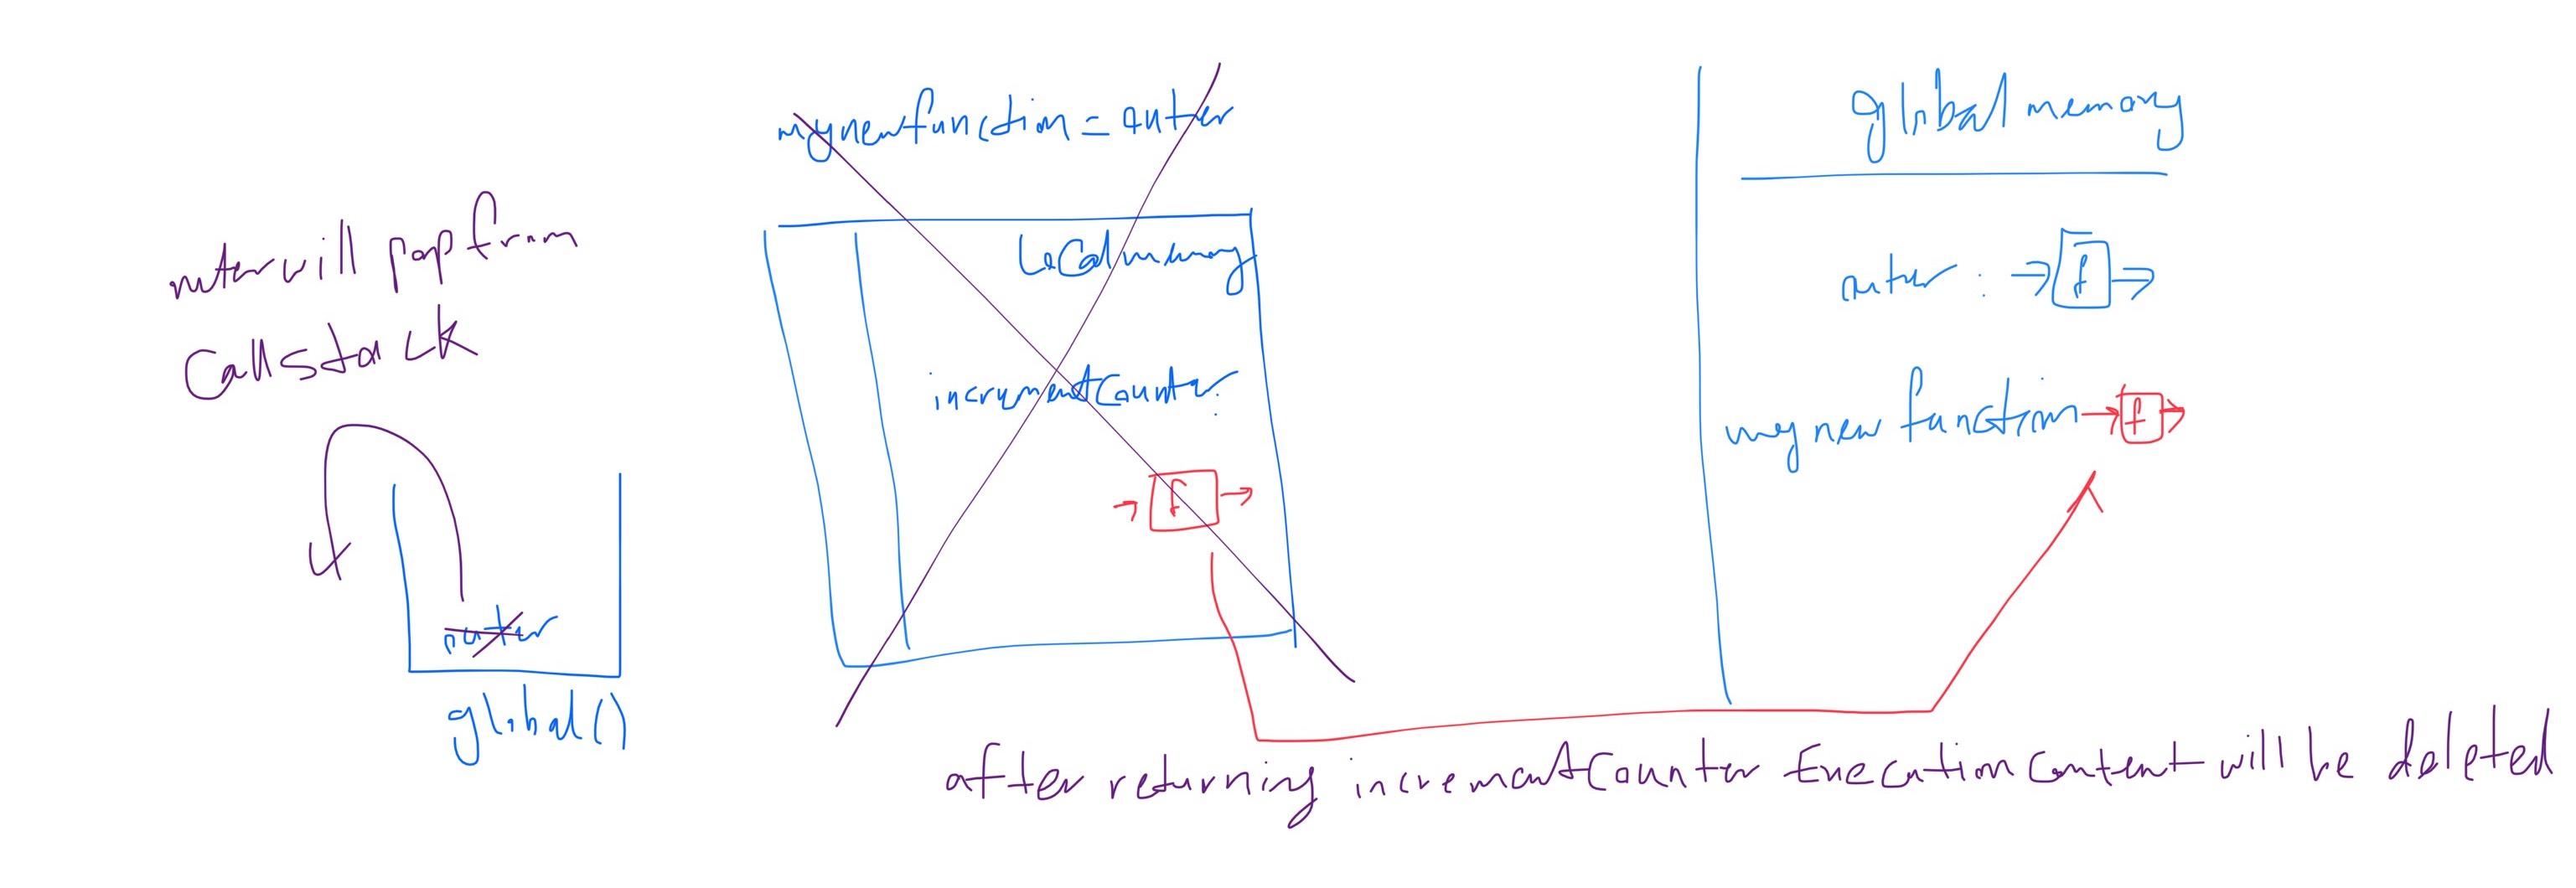 outer will pop from
Callstack
outer
global()
mynewfunction = outer
Local memory
incrementCounter:
f
global memory
outer : f
mynew function f
after returning incrementCounter Execution Content will be deleted